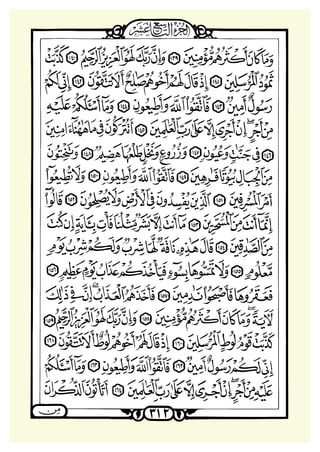 الجزء التاسع عشر
وَمَا كَانَ أَكْثَرُهُم مُّؤْمِنِينَ ١٣٩ وَإِنَّ رَبَّكَ لَهُوَ الْعَزِيزُ الرَّحِيمُ ١٤٠ كَذَّبَتْ
ثَمُودُ الْمُرْسَلِينَ ١٤١ إِذْ قَالَ لَهُمْ أَخُوهُمْ صَالِحٌ أَلَا تَتَّقُونَ ١٤٢ إِنِّي لَكُمْ
رَسُولٌ أَمِينٌ ١٤٣ فَاتَّقُوا اللَّهَ وَأَطِيعُونِ ١٤٤ وَمَا أَسْـَٔلُكُمْ عَلَيْهِ
مِنْ أَجْرٍ إِنْ أَجْرِيَ إِلَّا عَلَىٰ رَبِّ الْعَٰلَمِينَ ١٤٥ أَتُتْرَكُونَ فِي مَا هَٰهُنَا ءَامِنِينَ
١٤٦ فِي جَنَّٰتٍ وَعُيُونٍ ١٤٧ وَزُرُوعٍ وَنَخْلٍ طَلْعُهَا هَضِيمٌ ١٤٨ وَتَنْحِتُونَ
مِنَ الْجِبَالِ بُيُوتًا فَٰرِهِينَ ١٤٩ فَاتَّقُوا اللَّهَ وَأَطِيعُونِ ١٥٠ وَلَا تُطِيعُوا
أَمْرَ الْمُسْرِفِينَ ١٥١ الَّذِينَ يُفْسِدُونَ فِي الْأَرْضِ وَلَا يُصْلِحُونَ ١٥٢ قَالُوا
إِنَّمَا أَنتَ مِنَ الْمُسَحَّرِينَ ١٥٣ مَا أَنتَ إِلَّا بَشَرٌ مِّثْلُنَا فَأْتِ بِـَٔايَةٍ إِن كُنتَ
مِنَ الصَّٰدِقِينَ ١٥٤ قَالَ هَٰذِهِ نَاقَةٌ لَّهَا شِرْبٌ وَلَكُمْ شِرْبُ يَوْمٍ
مَّعْلُومٍ ١٥٥ وَلَا تَمَسُّوهَا بِسُوءٍ فَيَأْخُذَكُمْ عَذَابُ يَوْمٍ عَظِيمٍ ١٥٦
فَعَقَرُوهَا فَأَصْبَحُوا نَٰدِمِينَ ١٥٧ فَأَخَذَهُمُ الْعَذَابُ إِنَّ فِي ذَٰلِكَ
لَـَٔايَةً وَمَا كَانَ أَكْثَرُهُم مُّؤْمِنِينَ ١٥٨ وَإِنَّ رَبَّكَ لَهُوَ الْعَزِيزُ الرَّحِيمُ ١٥٩
كَذَّبَتْ قَوْمُ لُوطٍ الْمُرْسَلِينَ ١٦٠ إِذْ قَالَ لَهُمْ أَخُوهُمْ لُوطٌ أَلَا تَتَّقُونَ ١٦١
إِنِّي لَكُمْ رَسُولٌ أَمِينٌ ١٦٢ فَاتَّقُوا اللَّهَ وَأَطِيعُونِ ١٦٣ وَمَا أَسْـَٔلُكُمْ
عَلَيْهِ مِنْ أَجْرٍ إِنْ أَجْرِيَ إِلَّا عَلَىٰ رَبِّ الْعَٰلَمِينَ ١٦٤ أَتَأْتُونَ الذُّكْرَانَ
٣١٢
مِنَ